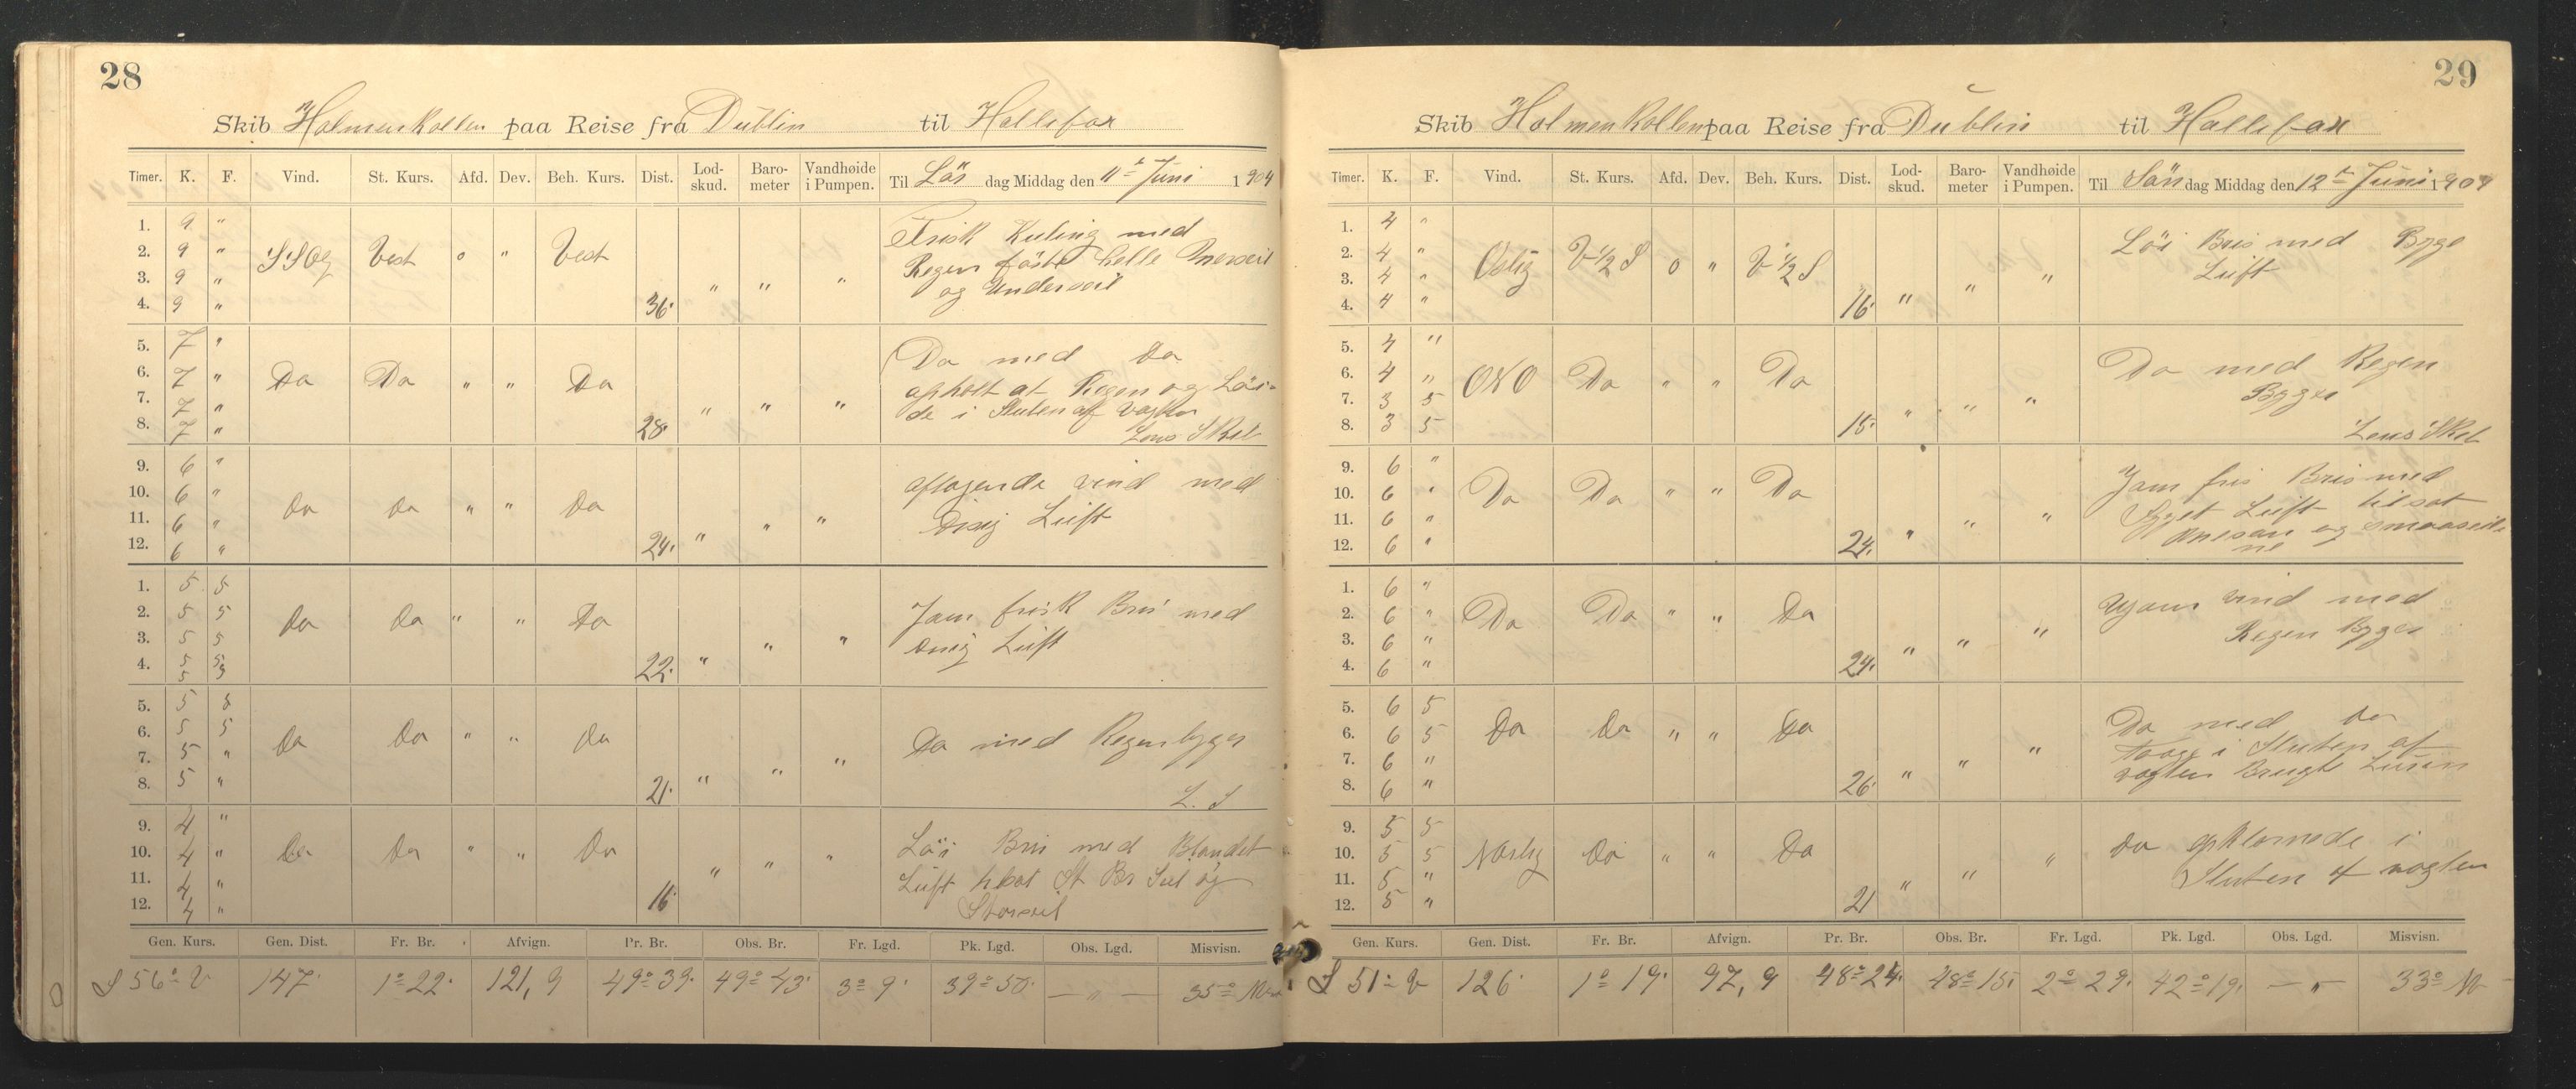 28
Skib Holmenkollen paa Reise fra Dublin til Hallifax
Timer. K. F. Vind. St. Kurs. Afd. Dev. Beh. Kurs. Dist. Lod-skud. Baro-meter Vandhøide i Pumpen. Til Lör dag Middag den 11te Juni 1904
1. 9 "
2. 9 " SSOg Vest o " Vest
3. 9 "
4. 9 " 36. " " "
Frisk Kuling med
Regen föste helle Mersseil
og Underseil
5. 7 "
6. 7 " Do Do " " Do
7. 7 "
8. 7 " 28. " " "
Do med Do
opholt at Regen og Löi-
de i Sluten af Vagten
Lens Skib
9. 6 "
10. 6 " Do do " " Do
11. 6 "
12. 6 " 24. " " "
aftagende vind med
Disig Luft
1. 5 5
2. 5 5 do do " " Do
3. 5 5
4. 5 5 22. " " "
5 5
Jam frisk Bris med
Disig Luft
5. 5 5
6. 5 5 do do " " do
7. 5 "
8. 5 " 21. " " "
Do med Regenbyger
L. S
9. 4 "
10. 4 " do do " " Do
11. 4 "
12. 4 " 16. " " "
Löi Bris med Blandet
Luft tilsat St Br Seil og
Storseil
Gen. Kurs. Gen. Dist. Fr. Br. Afvign. Pr. Br. Obs. Br. Fr. Lgd. Pk. Lgd. Obs. Lgd. Misvisn.
S 56° V 147' 1° 22' 121,9 49° 39' 49° 43' 3° 9' 39° 50' — " — 35°
29
Skib Holmenkollen paa Reise fra Dublin til Hallifax
Timer. K. F. Vind. St. Kurs. Afd. Dev. Beh. Kurs. Dist. Lod-skud. Baro-meter Vandhøide i Pumpen. Til Sön dag Middag den 12te Juni 1904
1. 4 "
2. 4 " Ostlig V ½ S o " V ½ S
3. 4 "
4. 4 " 16. " " "
Löi Bris med Byge
Luft
5. 4 "
6. 4 " ONO Do " " Do
7. 3 5
8. 3 5 15. " " "
Do med Regen
Byger
Lens Skib
9. 6 "
10. 6 " Do Do " " Do
11. 6 "
12. 6 " 24. " " "
Jam fris Bris med
Luft tilsat
Mesan og smaaseile
ne
1. 6 "
2. 6 " Do Do " " Do
3. 6 "
4. 6 " 24. " " "
Ujam vind med
Regen Byger
5. 6 5
6. 6 5 Do do " " Do
7. 6 "
8. 6 " 26. " " "
Do med Do
Taage i Sluten af
vagten Brugte Luren
9. 5 5
10. 5 5 Norlig Do " " Do
11. 5 "
12. 5 " 21 " " "
Do opklarnede i
Sluten af vagten
Gen. Kurs. Gen. Dist. Fr. Br. Afvign. Pr. Br. Obs. Br. Fr. Lgd. Pk. Lgd. Obs. Lgd. Misvisn.
S 51° V 126' 1° 19' 97,9 48° 24' 48° 15' 2° 29' 42° 19' — " 33°